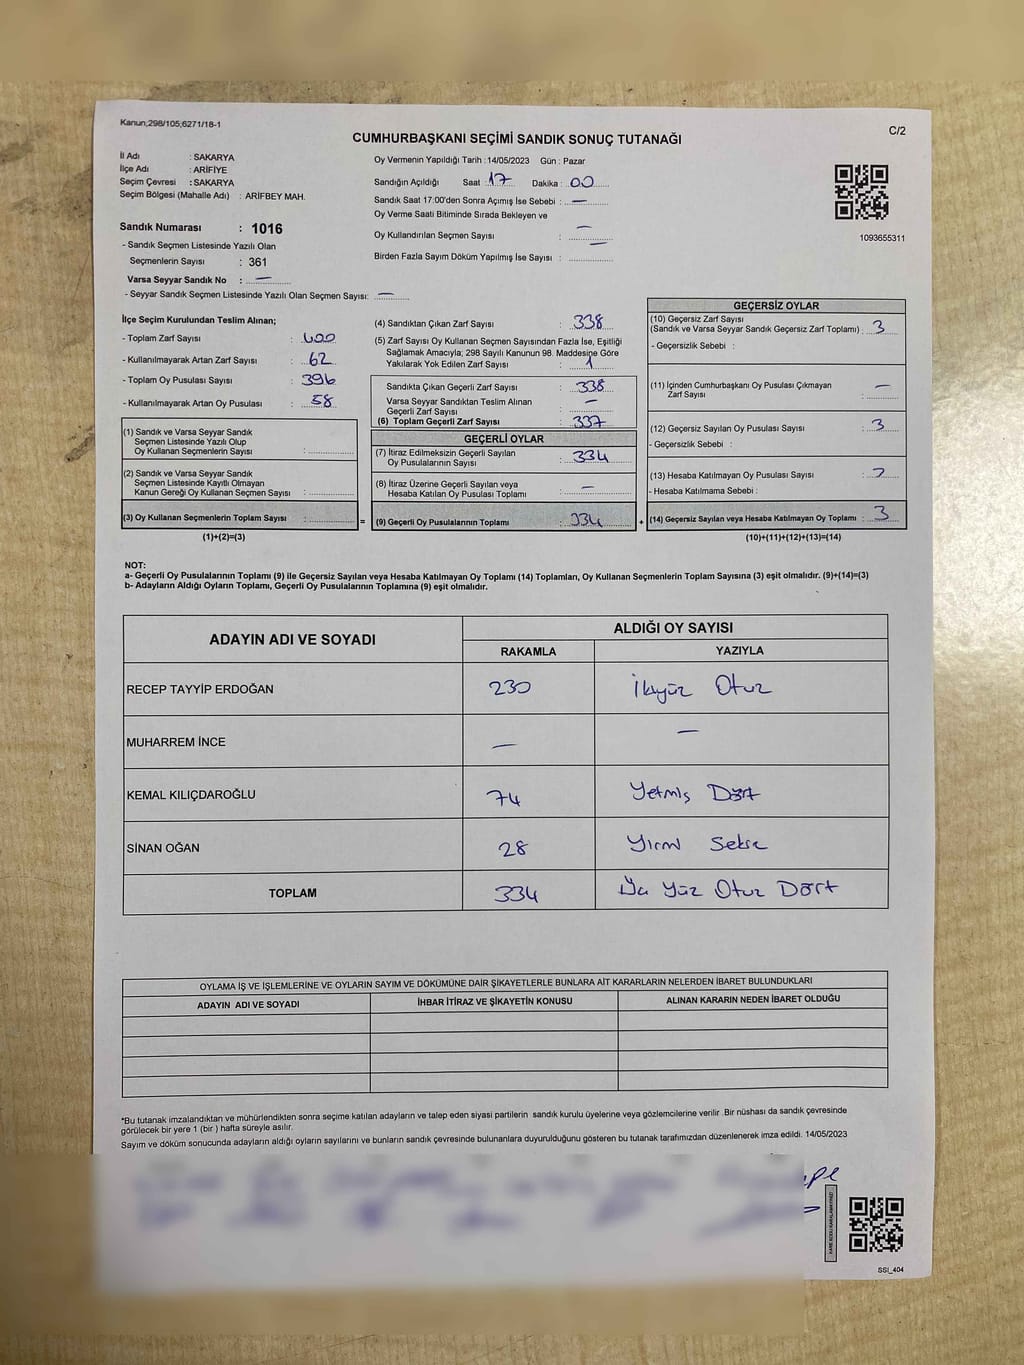 Kanun;298/105;6271/18-1
C/2
CUMHURBAŞKANI SEÇİMİ SANDIK SONUÇ TUTANAĞI
İl Adı : SAKARYA
İlçe Adı : ARİFİYE
Seçim Çevresi : SAKARYA
Seçim Bölgesi (Mahalle Adı) : ARİFBEY MAH.
Oy Vermenin Yapıldığı Tarih : 14/05/2023 Gün : Pazar
Sandığın Açıldığı Saat 17 Dakika : 00
Sandık Saat 17:00'den Sonra Açımış İse Sebebi : —
Oy Verme Saati Bitiminde Sırada Bekleyen ve
Oy Kullandırılan Seçmen Sayısı : —
Birden Fazla Sayım Döküm Yapılmış İse Sayısı : —
1093655311
Sandık Numarası : 1016
- Sandık Seçmen Listesinde Yazılı Olan
Seçmenlerin Sayısı : 361
Varsa Seyyar Sandık No : —
- Seyyar Sandık Seçmen Listesinde Yazılı Olan Seçmen Sayısı: —
İlçe Seçim Kurulundan Teslim Alınan;
- Toplam Zarf Sayısı : 400
- Kullanılmayarak Artan Zarf Sayısı : 62
- Toplam Oy Pusulası Sayısı : 396
- Kullanılmayarak Artan Oy Pusulası : 58
(1) Sandık ve Varsa Seyyar Sandık
Seçmen Listesinde Yazılı Olup
Oy Kullanan Seçmenlerin Sayısı :
(2) Sandık ve Varsa Seyyar Sandık
Seçmen Listesinde Kayıtlı Olmayan
Kanun Gereği Oy Kullanan Seçmen Sayısı :
(3) Oy Kullanan Seçmenlerin Toplam Sayısı : =
(1)+(2)=(3)
(4) Sandıktan Çıkan Zarf Sayısı : 338
(5) Zarf Sayısı Oy Kullanan Seçmen Sayısından Fazla İse, Eşitliği
Sağlamak Amacıyla; 298 Sayılı Kanunun 98. Maddesine Göre
Yakılarak Yok Edilen Zarf Sayısı : 1
Sandıkta Çıkan Geçerli Zarf Sayısı : 338
Varsa Seyyar Sandıktan Teslim Alınan
Geçerli Zarf Sayısı : —
(6) Toplam Geçerli Zarf Sayısı : 337
GEÇERLİ OYLAR
(7) İtiraz Edilmeksizin Geçerli Sayılan
Oy Pusulalarının Sayısı : 334
(8) İtiraz Üzerine Geçerli Sayılan veya
Hesaba Katılan Oy Pusulası Toplamı : —
(9) Geçerli Oy Pusulalarının Toplamı : 334 +
GEÇERSİZ OYLAR
(10) Geçersiz Zarf Sayısı
(Sandık ve Varsa Seyyar Sandık Geçersiz Zarf Toplamı) : 3
- Geçersizlik Sebebi :
(11) İçinden Cumhurbaşkanı Oy Pusulası Çıkmayan
Zarf Sayısı : —
(12) Geçersiz Sayılan Oy Pusulası Sayısı : 3
- Geçersizlik Sebebi :
(13) Hesaba Katılmayan Oy Pusulası Sayısı :
- Hesaba Katılmama Sebebi :
(14) Geçersiz Sayılan veya Hesaba Katılmayan Oy Toplamı : 3
(10)+(11)+(12)+(13)=(14)
NOT:
a- Geçerli Oy Pusulalarının Toplamı (9) ile Geçersiz Sayılan veya Hesaba Katılmayan Oy Toplamı (14) Toplamları, Oy Kullanan Seçmenlerin Toplam Sayısına (3) eşit olmalıdır. (9)+(14)=(3)
b- Adayların Aldığı Oyların Toplamı, Geçerli Oy Pusulalarının Toplamına (9) eşit olmalıdır.
ADAYIN ADI VE SOYADI
ALDIĞI OY SAYISI
RAKAMLA YAZIYLA
RECEP TAYYİP ERDOĞAN 230 İkiyüz Otuz
MUHARREM İNCE — —
KEMAL KILIÇDAROĞLU 74 Yetmiş Dört
SİNAN OĞAN 28
TOPLAM 334 Yüz Otuz Dört
OYLAMA İŞ VE İŞLEMLERİNE VE OYLARIN SAYIM VE DÖKÜMÜNE DAİR ŞİKAYETLERLE BUNLARA AİT KARARLARIN NELERDEN İBARET BULUNDUKLARI
ADAYIN ADI VE SOYADI İHBAR İTİRAZ VE ŞİKAYETİN KONUSU ALINAN KARARIN NEDEN İBARET OLDUĞU
*Bu tutanak imzalandıktan ve mühürlendikten sonra seçime katılan adayların ve talep eden siyasi partilerin sandık kurulu üyelerine veya gözlemcilerine verilir .Bir nüshası da sandık çevresinde
görülecek bir yere 1 (bir ) hafta süreyle asılır.
Sayım ve döküm sonucunda adayların aldığı oyların sayılarını ve bunların sandık çevresinde bulunanlara duyurulduğunu gösteren bu tutanak tarafımızdan düzenlenerek imza edildi. 14/05/2023
KARE KODU KARALAMAYINIZ!
SSI_404